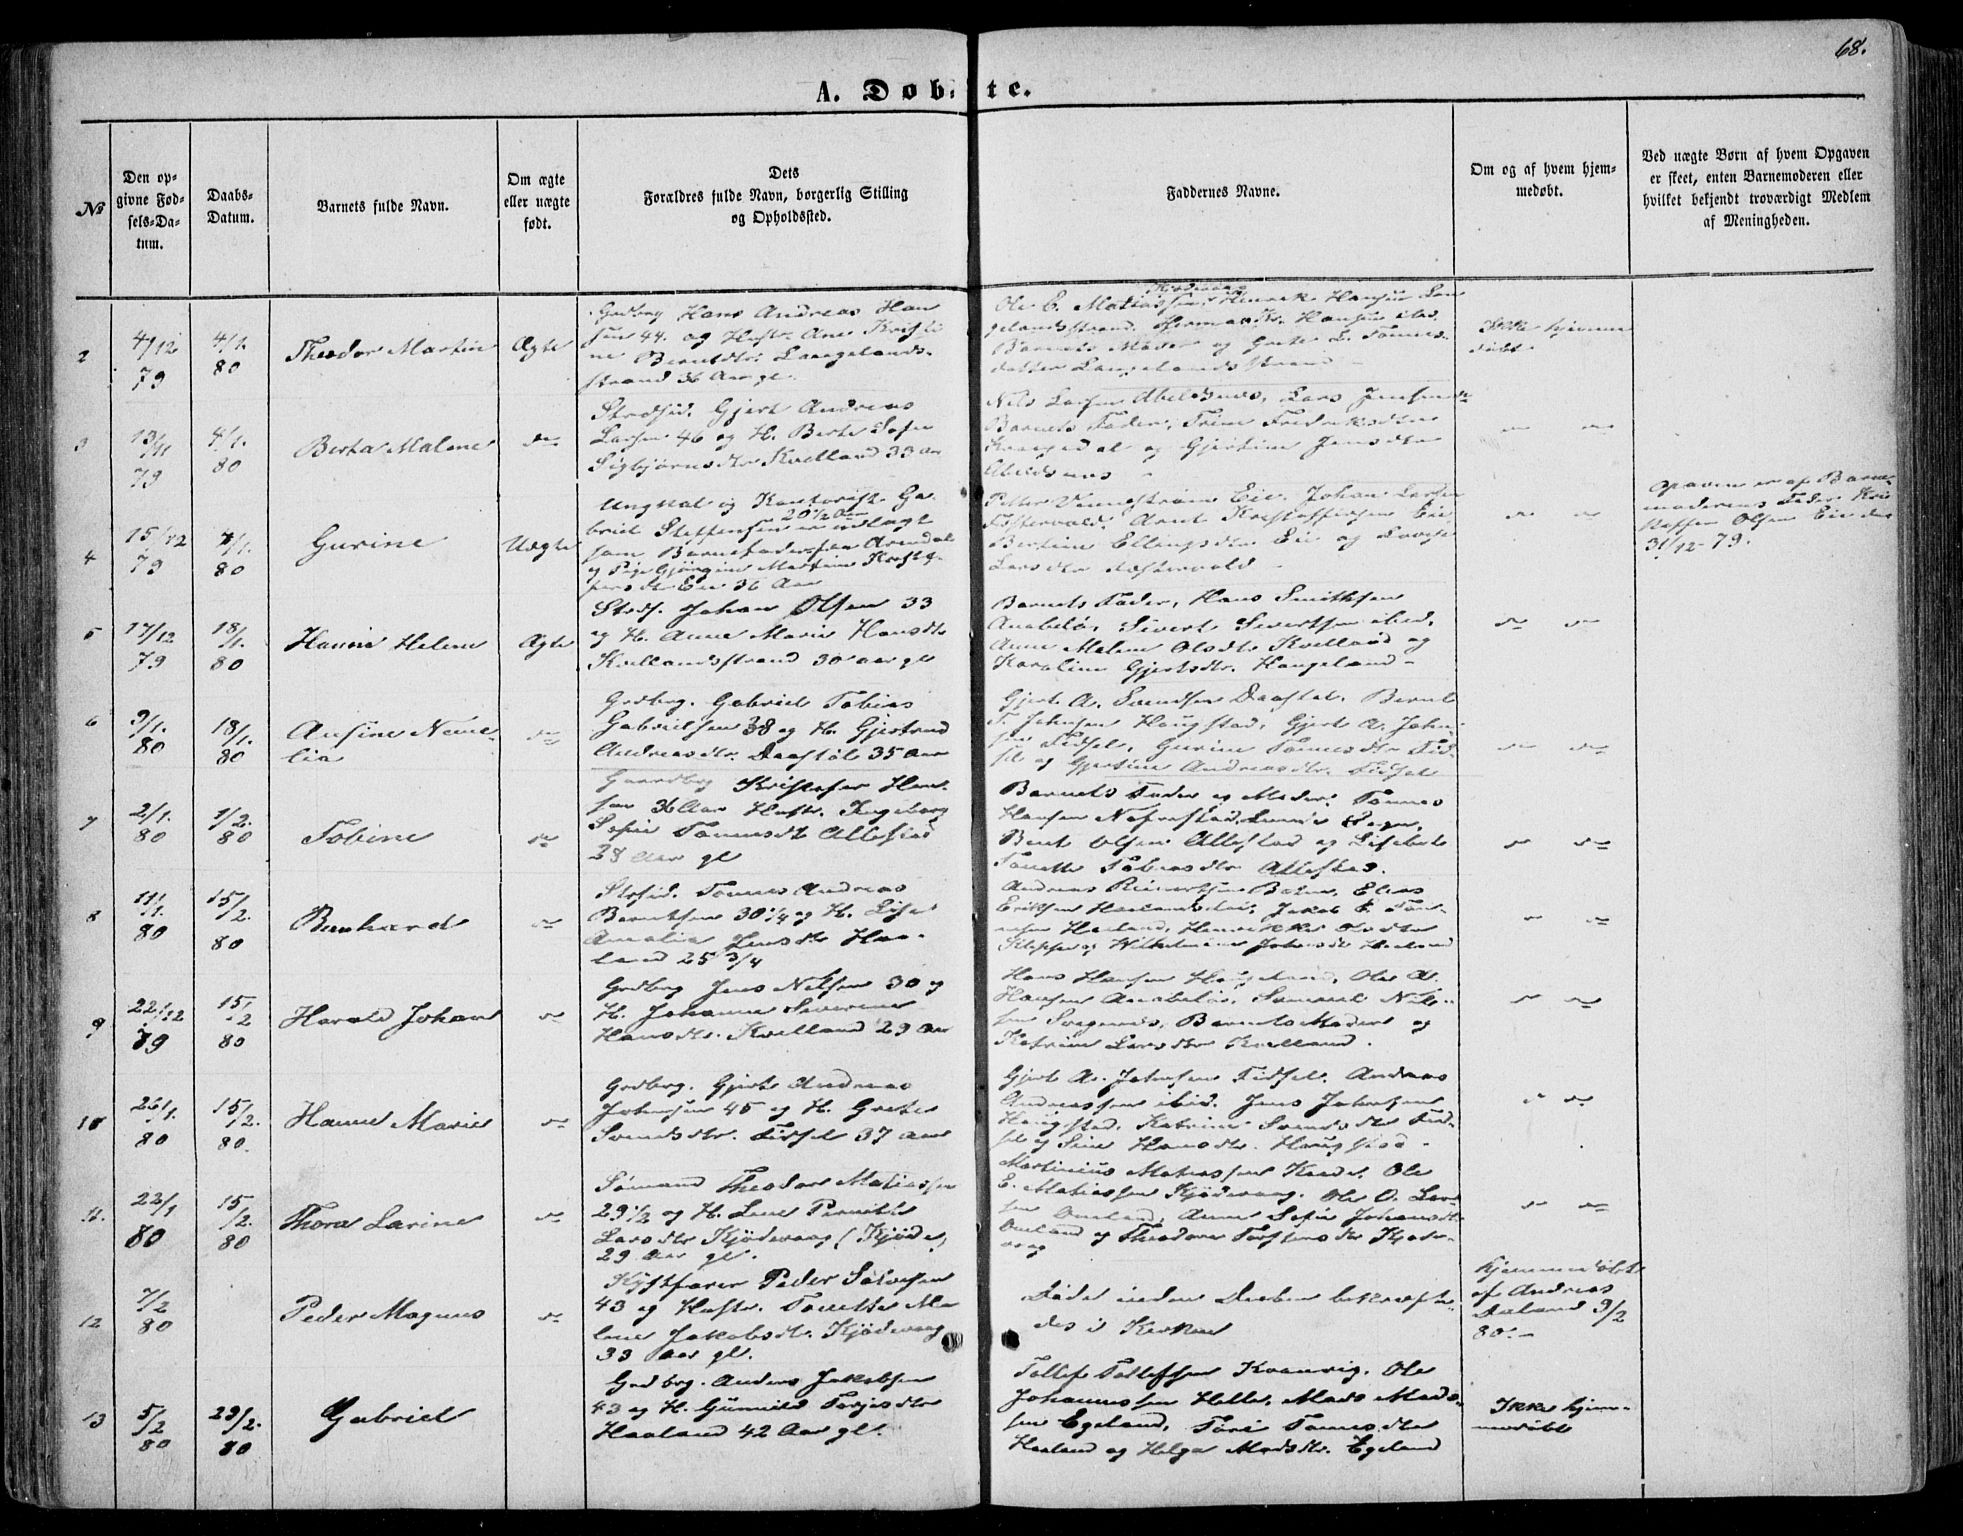 68.
A. Døbte.
№
Den opgivne Fødsels-Datum.
Daabs-Datum.
Barnets fulde Navn.
Om ægte eller uægte født.
Dets Forældres fulde Navn, borgerlig Stilling og Opholdssted.
Faddernes Navne.
Om og af hvem hjemmedøbt.
Ved uægte Børn af hvem Opgaven er skeet, enten Barnemoderen eller hvilket bekjendt troværdigt Medlem af Meningheden.
2
4/12 79
4/1. 80
Theodor Martin
Ægte
Grdbrg Hans Andreas Han
sen 44. og Hustr. Ane Kristi
ne Berntdtr. Langelands-
strand 36 Aar gl.
Ole C. Mathiassen Kjødevaag, Henrik Hansen Lan
gelandsstrand. Herman Kr. Hansen ibid.
Barnets Moder og Grete L. Tønnes-
datter Langelandsstrand
Ikke hjemme
døbt.
3
13/11 79
4/1. 80
Berta Malene
Gjert Andreas
Larsen 46 og H. Berte Sofie
Sigbjørnsdtr Kvelland 33 Aar
Nils Larsen Abelsnes, Lars Jensen
Barnets Fader, Trine Fredriksdtr
og Gjertine Jensdtr
Abelsnes
4
15/12 79
4/1. 80
Gurine
Uægte
Ungkal og Kontorist Ga
briel Steffensen 20 1/2 Aar er udlagt
som Barnefader fra Arendal
og Pige Gjørgine Martine Kristof
fersdtr Eie 36 Aar
Petter Vennstrøm Eie. Johan Larsen
Arnt Kristoffersen Eie
Bertine Ellingsdtr Eie og Lovise
Larsdtr
Opgaven er af Barne-
moderens Fader Kri
stoffer Olsen Eie den
31/12-79.
5
17/12 79
18/1. 80
Hanne Helene
Ægte
Johan Olsen 33
og H. Anne Marie Hansdtr
Kvellandsstrand 30 aar gl
Barnets Fader, Hans Smithsen
Anabeløe, Sivert Sivertsen ibid,
Anne Malene Olsdtr Kvelland og
Karoline Gjertsdtr. Haugeland -
6
9/1. 80
18/1. 80
Ansine Neme-
lia
Grdbrg. Gabriel Tobias
Gabrielsen 38 og H. Gjertrud
Andreasdtr. Daastøl 35 Aar
Gjert A. Svendsen Daastøl. Bernt
T. Johnsen Haugstad, Gjert A. John-
sen Fidsel, Gurine Tønnesdtr Fid-
sel og Gjertine Andreasdtr. Fidsel
7
2/1. 80
1/2. 80
Tobine
Gaardbrg Kristofer Han-
sen 36 Aar Hustr. Ingeborg
Sofie Tønnesdtr Allestad
28 Aar gl
Barnets Fader og Moder. Tønnes
Hansen
Bent Olsen Allestad og Lisebet
Tonette Tobiasdtr Allestad.
8
11/1. 80
15/2. 80
Bernhard
Tønnes Andreas
Berntsen 30 1/4 og H. Lise
Amalie Jensdtr Haa-
land 25 3/4
Andreas Reinertsen Elias
Eriksen Jakob E. Tøn-
nesen Haaland, Henrikke Olsdtr
og Wilhelmine Johnsdtr Haaland
9
22/12 79
15/2 80
Harald Johan
Grdbrg Jens Nilsen 30 og
H. Johanne Severine
Hansdtr. Kvelland 29 Aar
Hans Hansen Haugeland, Ole A.
Hansen Anabeløe, Samuel Nil-
sen Svegenes, Barnets Moder og
Katrine Larsdtr Kvelland.
10
26/1. 80
15/2. 80.
Hanne Marie
Grdbrg. Gjert Andreas
Johnsen 45 og H. Grete
Svendsdtr. Fidsel 37 aar
Gjert A. Johnsen Fidsel. Andreas
Andreassen ibid. Jens Johnsen
Haugstad, Katrine Svendsdtr Fid-
sel og Sine Hansdtr. Haugstad.
11.
22/1 80
15/2. 80
Thora Larine
Sømand Theodor Matiassen
29 1/2 og H. Lene Pernille
Larsdtr Kjødevaag (Kjøde)
29 Aar gl.
Martinius Matiassen Ole
E. Matiassen Kjødevaag. Ole O. Lar-
sen Omland, Anne Sofie Johansdtr
Omland og Theodore Torstensdtr Kjøde-
vaag
12
7/2 80
Peder Magnus
Kystfarer Peder Salvesen
43 og Hustr. Tonette Ma
lene Jakobsdtr. Kjødevaag
33 Aar gl.
Døde inden Daaben bekræfte-
des i Kirken
Hjemmedøbt
af Andreas
Aaland 9/2
80.-
13
5/2 80
29/2. 80
Gabriel
Grdbrg. Anders Jakobsen
43 og H. Gunnild Torjesdtr
Haaland 42 Aar gl.
Tollef Tollefsen Kvanvig. Ole
Johannessen Helle, Mads Mads-
sen Egeland, Tori Tønnesdtr
Haaland og Helga Madsdtr. Egeland
Ikke hjem-
medøbt